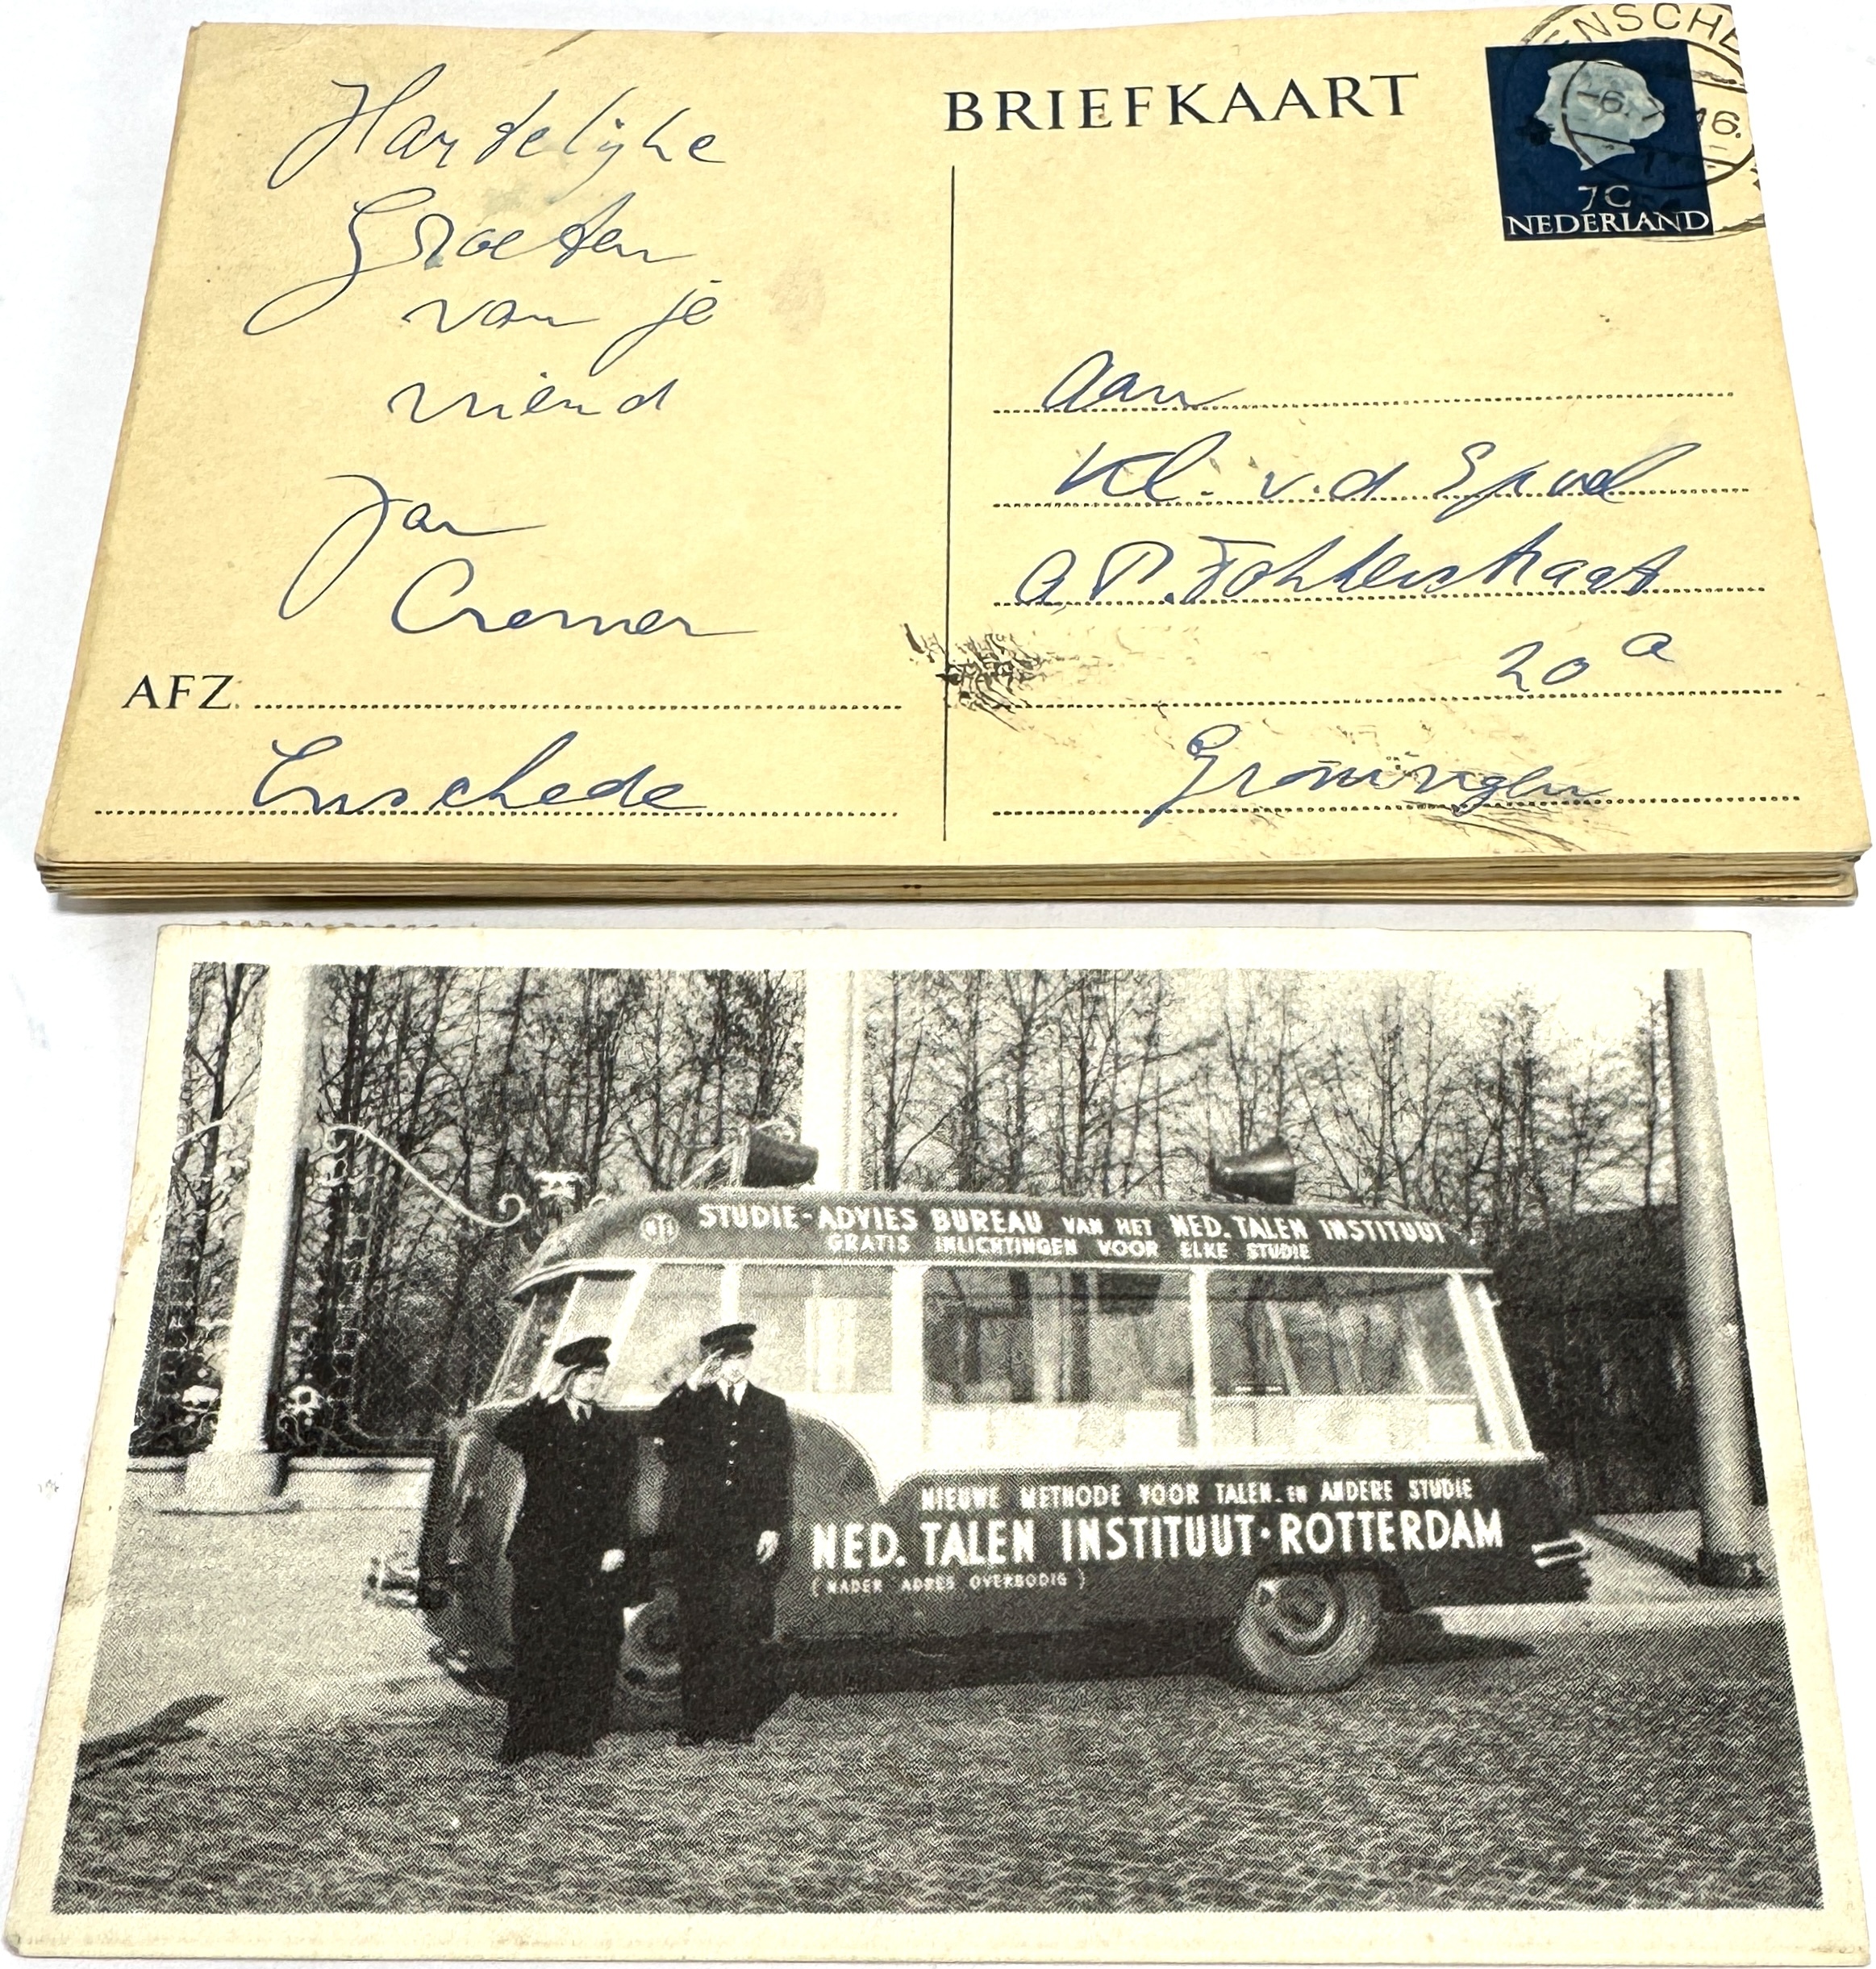 BRIEFKAART
ENSCHE
-6.
16.
7C
NEDERLAND
Hartelijke
Groeten
van je
vriend
Jan
Cremer
AFZ.
Enschede
Aan
Kl. v.d Spoel
A.P. Fokkerstraat
20 a
Groningen
STUDIE-ADVIES BUREAU VAN HET NED. TALEN INSTITUUT
GRATIS INLICHTINGEN VOOR ELKE STUDIE
NIEUWE METHODE VOOR TALEN- EN ANDERE STUDIE
NED. TALEN INSTITUUT·ROTTERDAM
(NADER ADRES OVERBODIG)